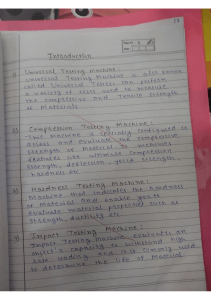 Introduction
1) Universal Testing Machine:
Universal Testing Machine is also known
called Universal Tester. This perform
a variety of tests used to measure
the compressive and Tensile strength
of Materials.
2) Compression Testing Machine:
This machine is specially designed to
assess and evaluate the compressive
strength of Material to measures
features like ultimate compression
strength, deflection, yield strength,
hardness etc.
3) Hardness Testing Machine:
Machine that indicates the hardness
of Material and enable you to
evaluate material properties such as
strength, ductility etc.
4) Impact Testing Machine:
Impact Testing Machine evaluates an
object's capacity to withstand high
rate loading and is commonly used
to determine the life of Material